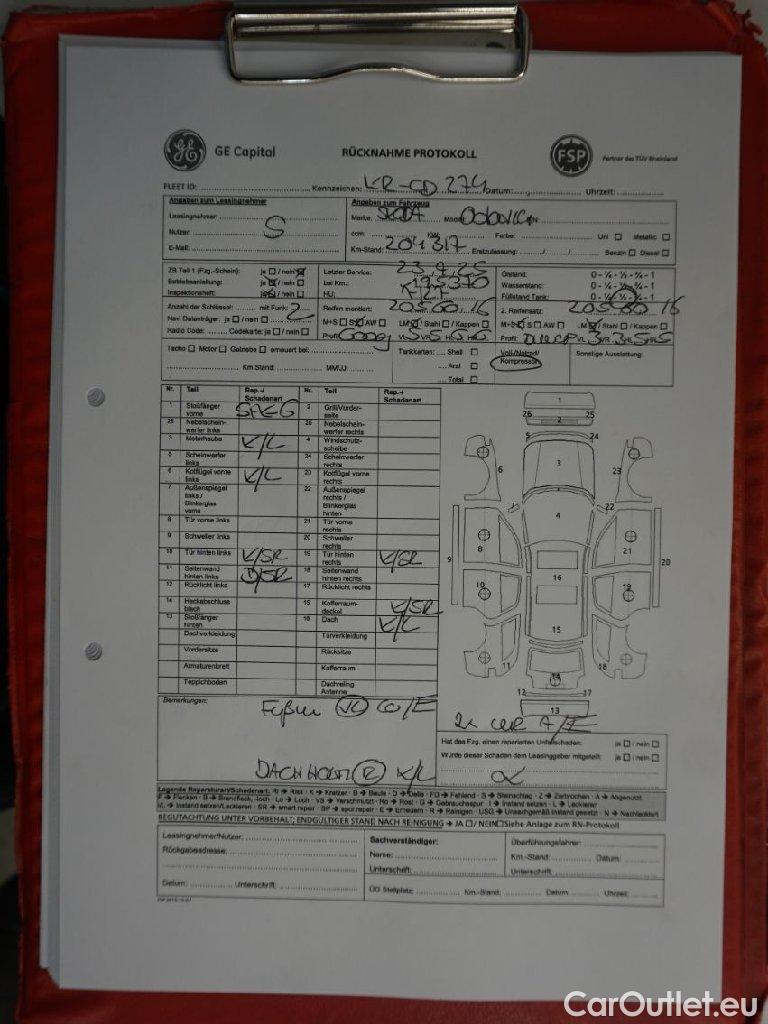 GE Capital RÜCKNAHME PROTOKOLL FSP Partner des TÜV Rheinland
FLEET ID: Kennzeichen: KR-CD 274 Datum: Uhrzeit:
Angaben zum Leasingnehmer Angaben zum Fahrzeug
Leasingnehmer: Marke: SKODA Modell: Octavia
Nutzer: S ccm: KW: Farbe: Uni Metallic
E-Mail: Km-Stand: 204317 Erstzulassung: Benzin Diesel
ZB Teil 1 (Fzg.-Schein): ja / nein Letzter Service: Ölstand: 0 - ¼ - ½ - ¾ - 1
Betriebsanleitung: ja / nein bei Km.: Wasserstand: 0 - ¼ - ½ - ¾ - 1
Inspektionsheft: ja / nein HU: Füllstand Tank: 0 - ¼ - ½ - ¾ - 1
Anzahl der Schlüssel: mit Funk: 2 Reifen montiert: 205 60 16 2. Reifensatz: 205 60 16
Navi Datenträger: ja / nein M+S S AW LM / Stahl / Kappen M+S S AW LM / Stahl / Kappen
Radio Code: Codekarte: ja / nein Profil: Profil:
Tacho Motor Getriebe erneuert bei: Tankkarten: Shell Voll-/Notrad/ Sonstige Ausstattung:
Kompressor
Aral
Km Stand: MM/JJ: Total
Nr. Teil Rep.-/ Schadenart Nr. Teil Rep.-/ Schadenart
1 Stoßfänger vorne 2 Grill/Vorder-seite
25 Nebelschein-werfer links 26 Nebelschein-werfer rechts
3 Motorhaube K/L 4 Windschutz-scheibe
5 Scheinwerfer links 24 Scheinwerfer rechts
6 Kotflügel vorne links K/L 23 Kotflügel vorne rechts
7 Außenspiegel links / Blinkerglas vorne 22 Außenspiegel rechts / Blinkerglas hinten
8 Tür vorne links 21 Tür vorne rechts
9 Schweller links 20 Schweller rechts
10 Tür hinten links K/SR 19 Tür hinten rechts K/SR
11 Seitenwand hinten links D/SR 18 Seitenwand hinten rechts
12 Rücklicht links 17 Rücklicht rechts
14 Heckabschluss blech 15 Kofferraum-deckel K/SR
13 Stoßfänger hinten 16 Dach K/L
Dachverkleidung Türverkleidung
Vordersitze Rücksitze
Armaturenbrett Kofferraum
Teppichboden Dachreling Antenne
1
26 2 25
5 24
6 3 23
7 22
4
9 8 21 20
10 16 19
15
11 14 18
12 17
13
Bemerkungen:
Hat das Fzg. einen reparierten Unfallschaden: ja / nein
Wurde dieser Schaden dem Leasinggeber mitgeteilt: ja / nein
Legende Reparaturen/Schadenart: Ri → Riss · K → Kratzer · B → Beule · D → Delle · FD → Fehlend · S → Steinschlag · Z → Zerbrochen · A → Abgenutzt
F → Flecken · B → Brandfleck, -loch · Lo → Loch · VS → Verschmutzt · Ro → Rost · G → Gebrauchsspur · I → Instand setzen · L → Lackierer
I/L → Instand setzen/Lackieren · SR → smart repair · SP → spot repair · E → Erneuern · R → Reinigen · USG → Unsachgemäß instand gesetzt · N → Nachlackiert
BEGUTACHTUNG UNTER VORBEHALT; ENDGÜLTIGER STAND NACH REINIGUNG → JA / NEIN Siehe Anlage zum RN-Protokoll
Leasingnehmer/Nutzer: Sachverständiger: Überführungsfahrer:
Rückgabeadresse: Name: Km.-Stand: Datum:
Unterschrift: Unterschrift:
Datum: Unterschrift: ÜO Stellplatz: Km.-Stand: Datum: Uhrzeit:
CarOutlet.eu